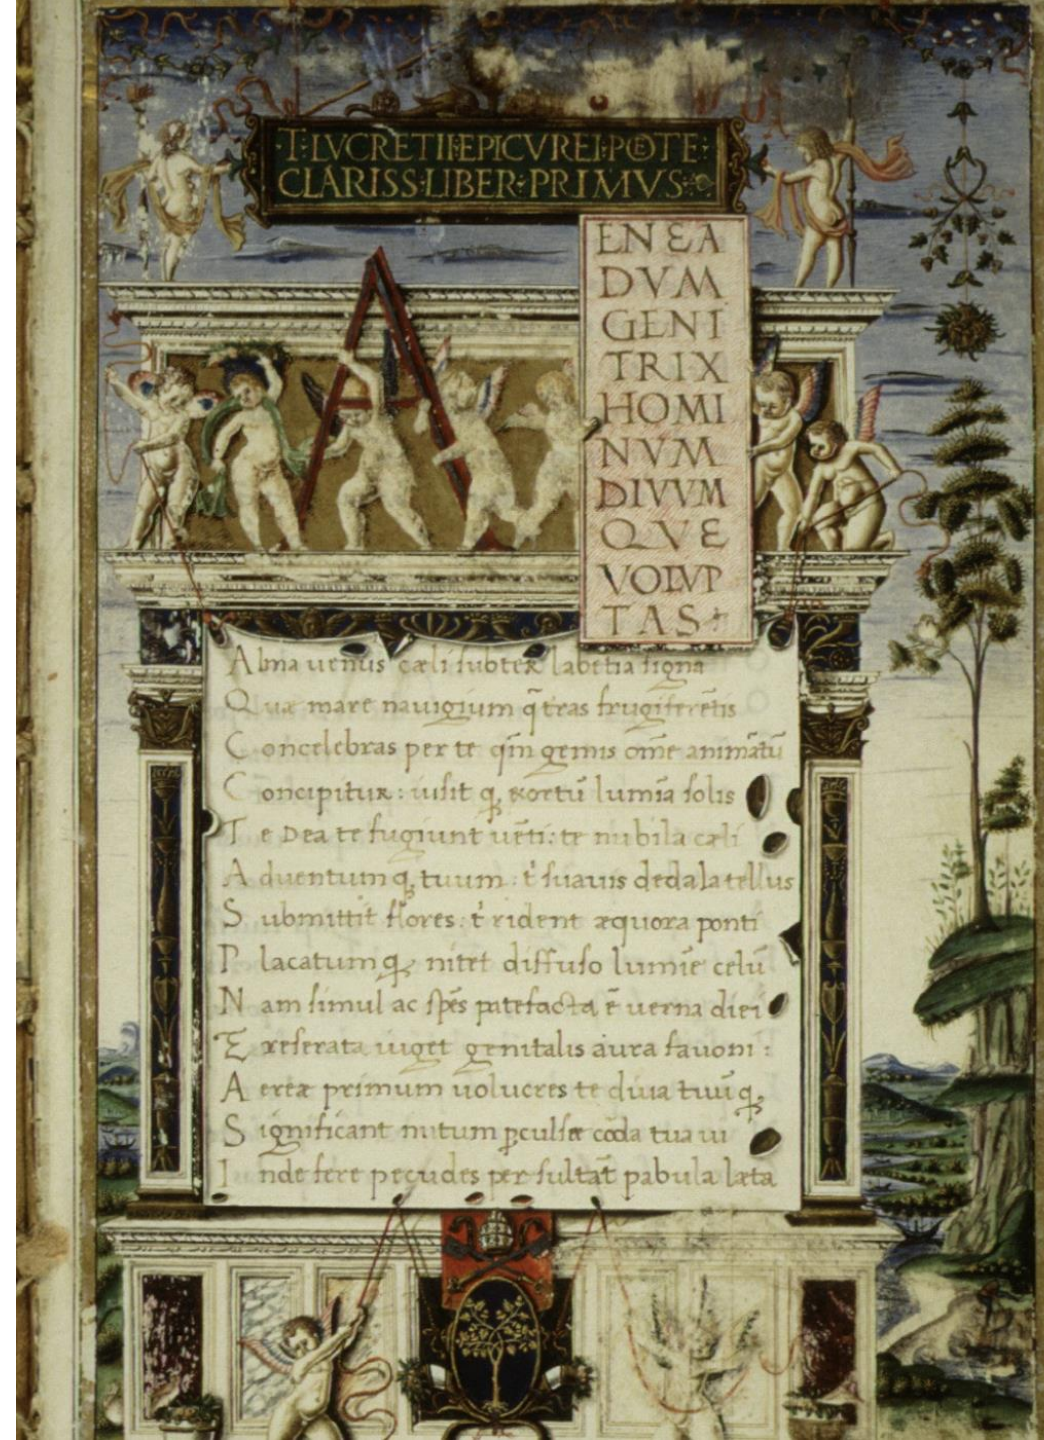 ·T·LVCRETII·EPICVREI·POETE·
CLARISS·LIBER·PRIMVS·
A
ENEA
DVM
GENI
TRIX
HOMI
NVM
DIVVM
QVE
VOLVP
TAS
Alma uenus cæli subter labētia signa
Quæ mare nauigium q̄ tras frugiferētis
Concelebras per te qm̄ genus om̄e animātū
Concipitur: uisit q; exortū lumīa solis
Te Dea te fugiunt uēti: te nubila cæli
Aduentum q; tuum: t' suauis dedala tellus
Submittit flores: t' rident æquora ponti
Placatum q; nitet diffuso lumīe celū
Nam simul ac spēs patefacta ē uerna diei
Exreserata uiget genitalis aura fauoni:
Aereæ primum uolucres te diua tuū q;
Significant nutum ꝑculsæ corda tua ui
Inde fere pecudes per sultāt pabula læta